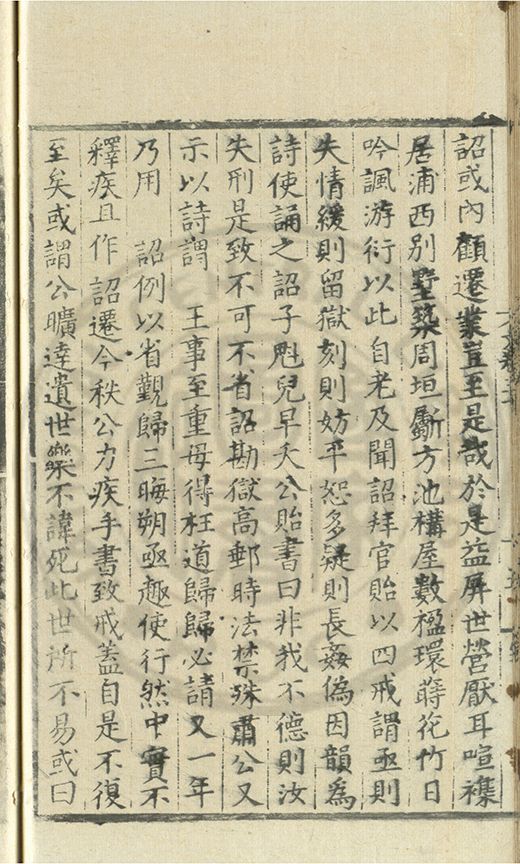 詔或內顧遷業豈至是哉於是益屏世營厭耳喧襍
居浦西別墅築周垣斸方池構屋數楹環蒔花竹日
吟諷游衍以此自老及聞詔拜官貽以四戒謂亟則
失情緩則留獄刻則妨平恕多疑則長姦偽因韻為
詩使誦之詔子魁兒早夭公貽書曰非我不德則汝
失刑是致不可不省詔勘獄高郵時法禁殊肅公又
示以詩謂　王事至重毋得枉道歸歸必請又一年
乃用　詔例以省覲歸三晦朔亟趣使行然中實不
釋疾且作詔遷今秩公力疾手書致戒蓋自是不復
至矣或謂公曠達遺世樂不諱死此世所不易或曰